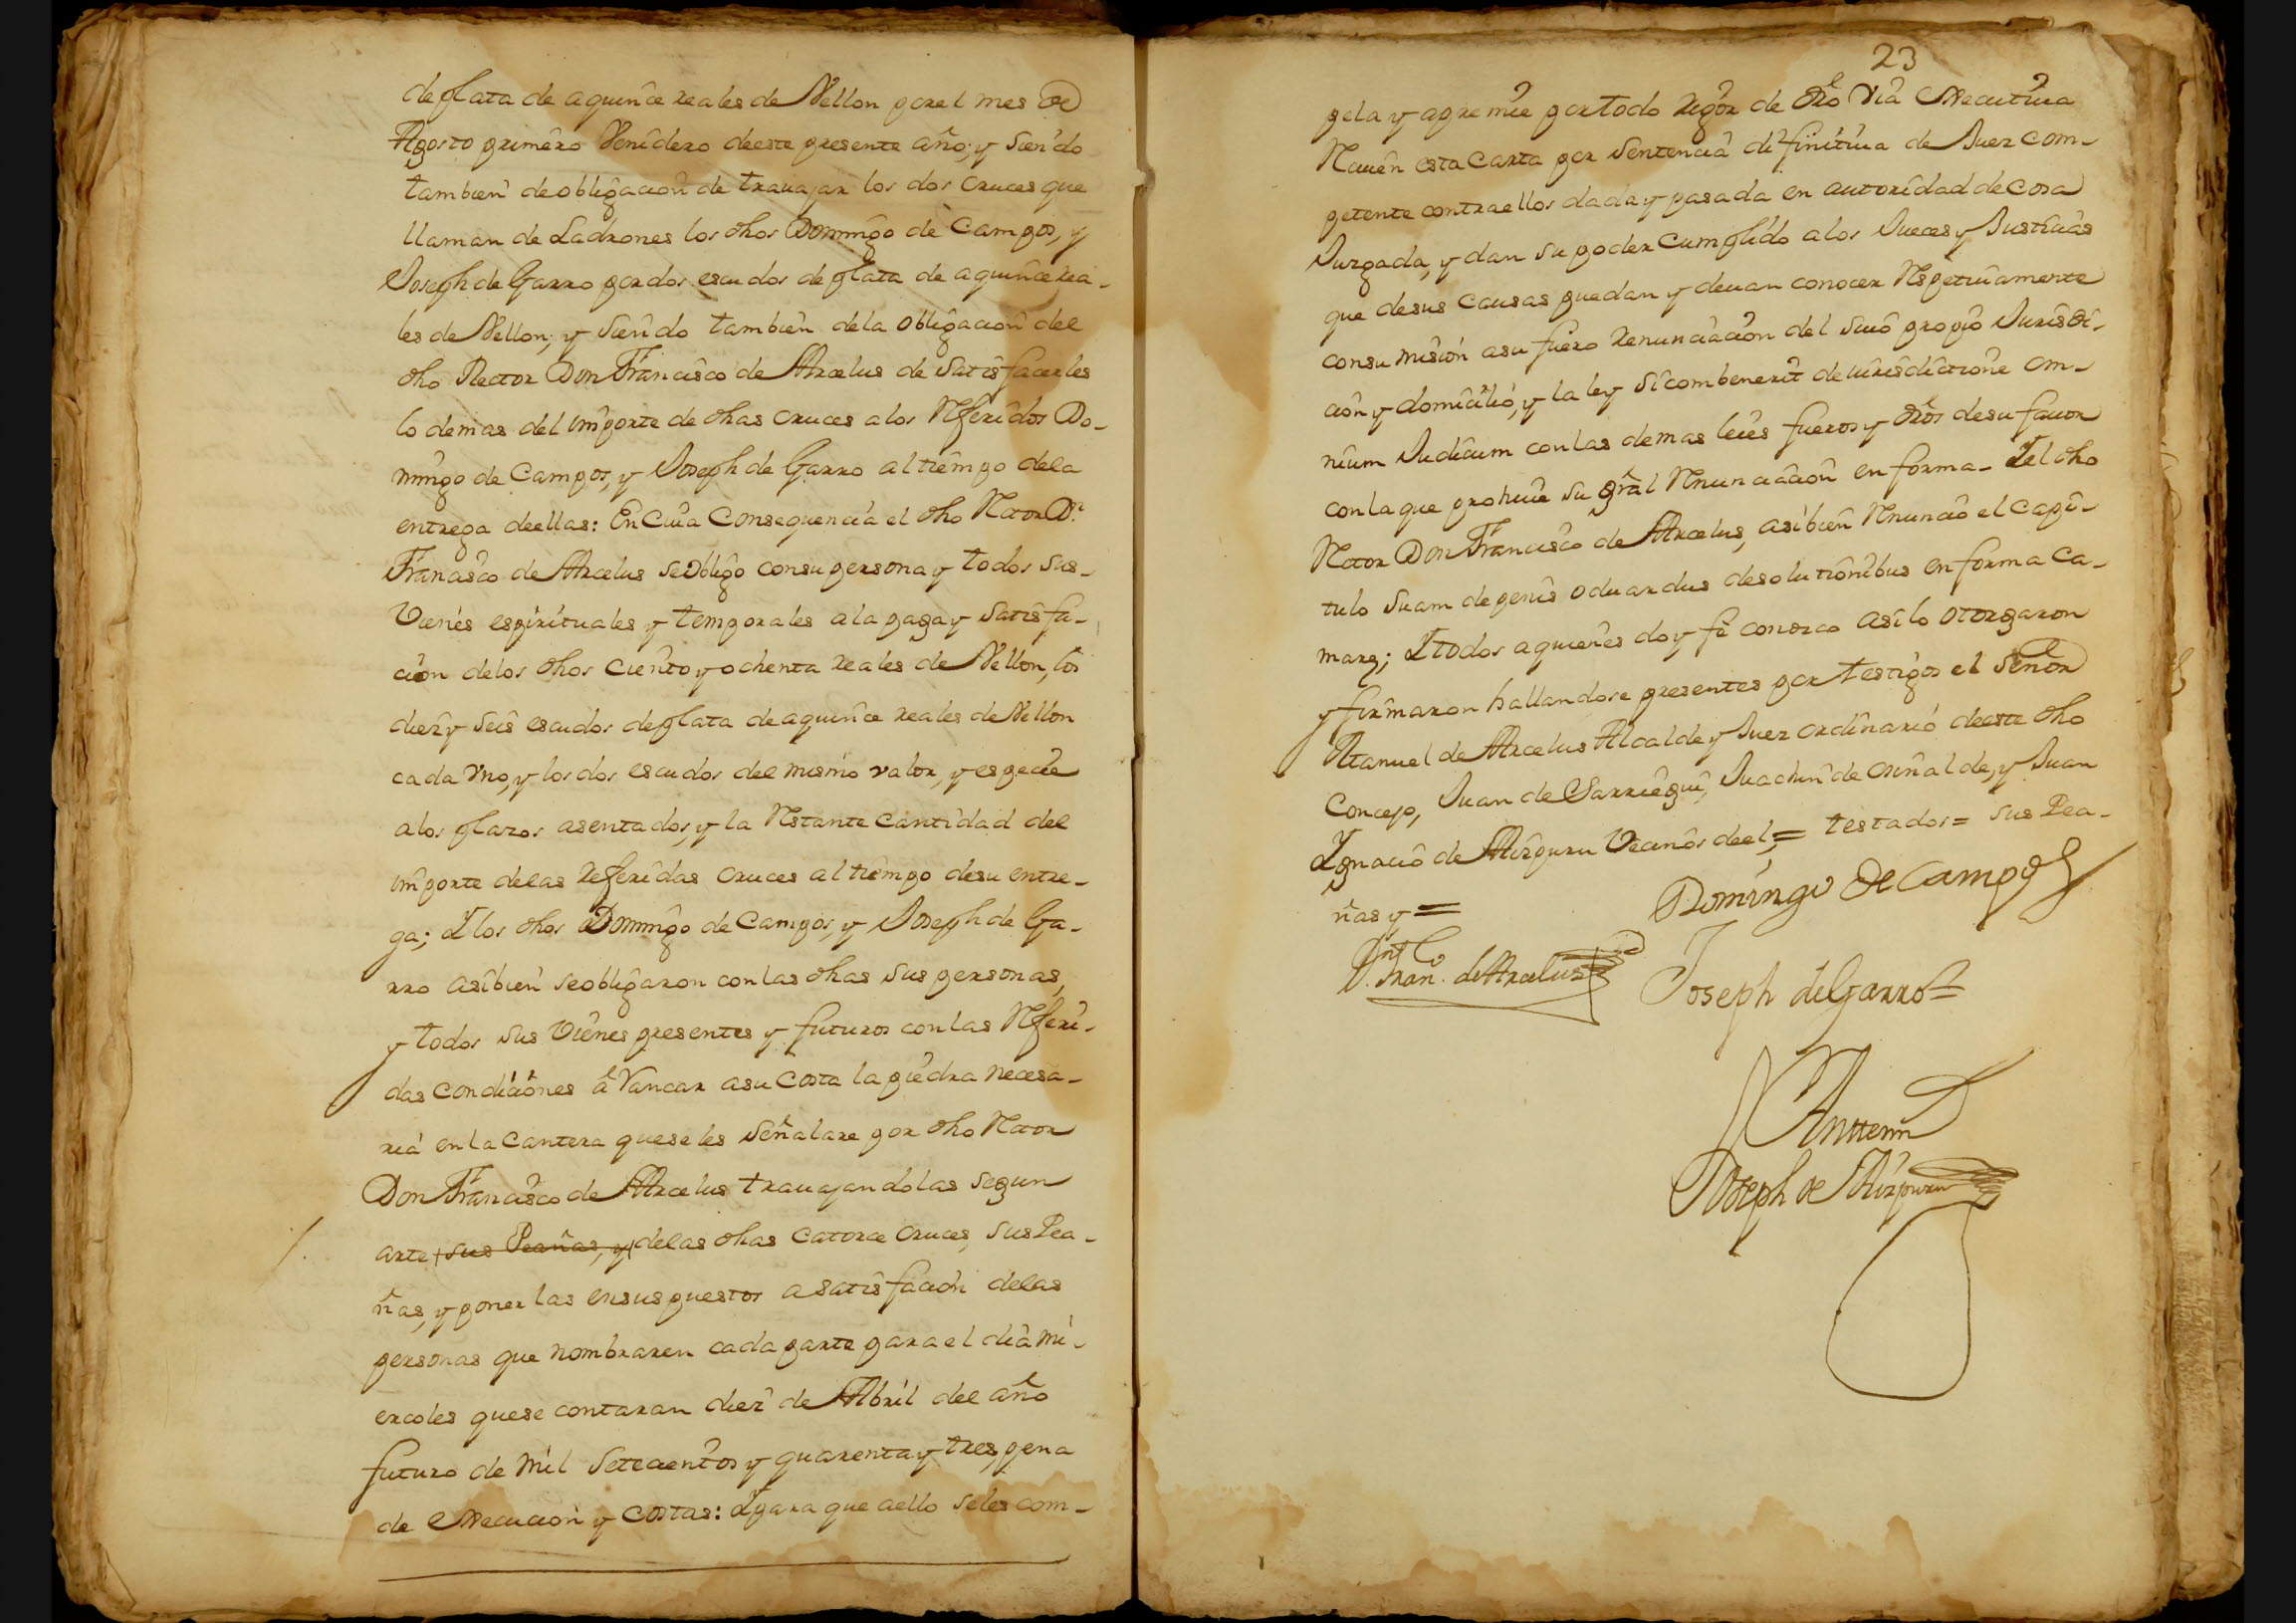 de plata de a quince reales de Vellon por el mes de
Agosto primero Venidero de este presente año, y siendo
tambien de obligacion de trauajar los dos cruces que
llaman de Ladrones los dhos Domingo de Campos, y
Joseph de Garro por dos escudos de plata de a quince rea-
les de Vellon; y siendo tambien de la obligacion del
dho Rector Don Francisco de Arcelus de satisfacerles
lo demas del importe de dhas cruces a los Referidos Do-
mingo de Campos, y Joseph de Garro al tiempo de la
entrega de ellas: En Cuia Consequencia el dho Rector Dn
Francisco de Arcelus se obligo con su persona y todos sus
Vienes espirituales y temporales a la paga y satisfa-
cion de los dhos ciento y ochenta reales de Vellon, los
diez y seis escudos de plata de a quince reales de Vellon
cada Vno, y los dos escudos del mismo valor, y especie
a los plazos asentados, y la Restante Cantidad del
importe de las referidas cruces al tiempo de su entre-
ga; Y los dhos Domingo de Campos, y Joseph de Ga-
rro asibien se obligaron con las dhas sus personas,
y todos sus Vienes presentes y futuros con las Referi-
das condiciones â Vancar a su costa la piedra necesa-
ria en la Cantera que se les señalare por dho Rector
Don Francisco de Arcelus trauajandolas segun
arte sus Peañas, y de las dhas catorce cruces, sus Pea-
ñas, y poner las en sus puestos a satisfacion de las
personas que nombraren cada parte para el dia mi-
ercoles que se contaran diez de Abril del año
futuro de mil setecientos y quarenta y tres, pena
de execucion y costas: Y para que a ello se les com-
23
pela y apremie por todo rigor de dro Via executiua
Reciuen esta Carta por sentencia difinitiua de Juez com-
petente contra ellos dada y pasada en autoridad de cosa
Juzgada, y dan su poder cumplido a los Jueces y Justicias
que de sus causas puedan y deuan conocer Respetiuamente
con sumision a su fuero renunciacion del suio propio Jurisdi-
cion y domicilio, y la ley sicombenerit de iurisdictione om-
nium Judicum con las demas leies fueros y dros de su fauor
con la que prohiue su gral Renunciacion en forma- Y el dho
Rector Don Francisco de Arcelus, asibien Renuncio el Capi-
tulo suam de penis oduardus de solutionibus en forma Ca-
mare; Y todos a quienes doy fe conozco asi lo otorgaron
y firmaron hallandose presentes por testigos el Señor
Manuel de Arcelus Alcalde y Juez ordinario de este dho
Concejo, Juan de Sarriegui, Juachin de Oria alde, y Juan
Ygnacio de Aizpuru Vecinos de el = testados = sus Pea-
ñas y =
Domingo de Campos
Dn Franco. de Arcelus
Joseph de Garro
Anttemi
Joseph de Aizpuru